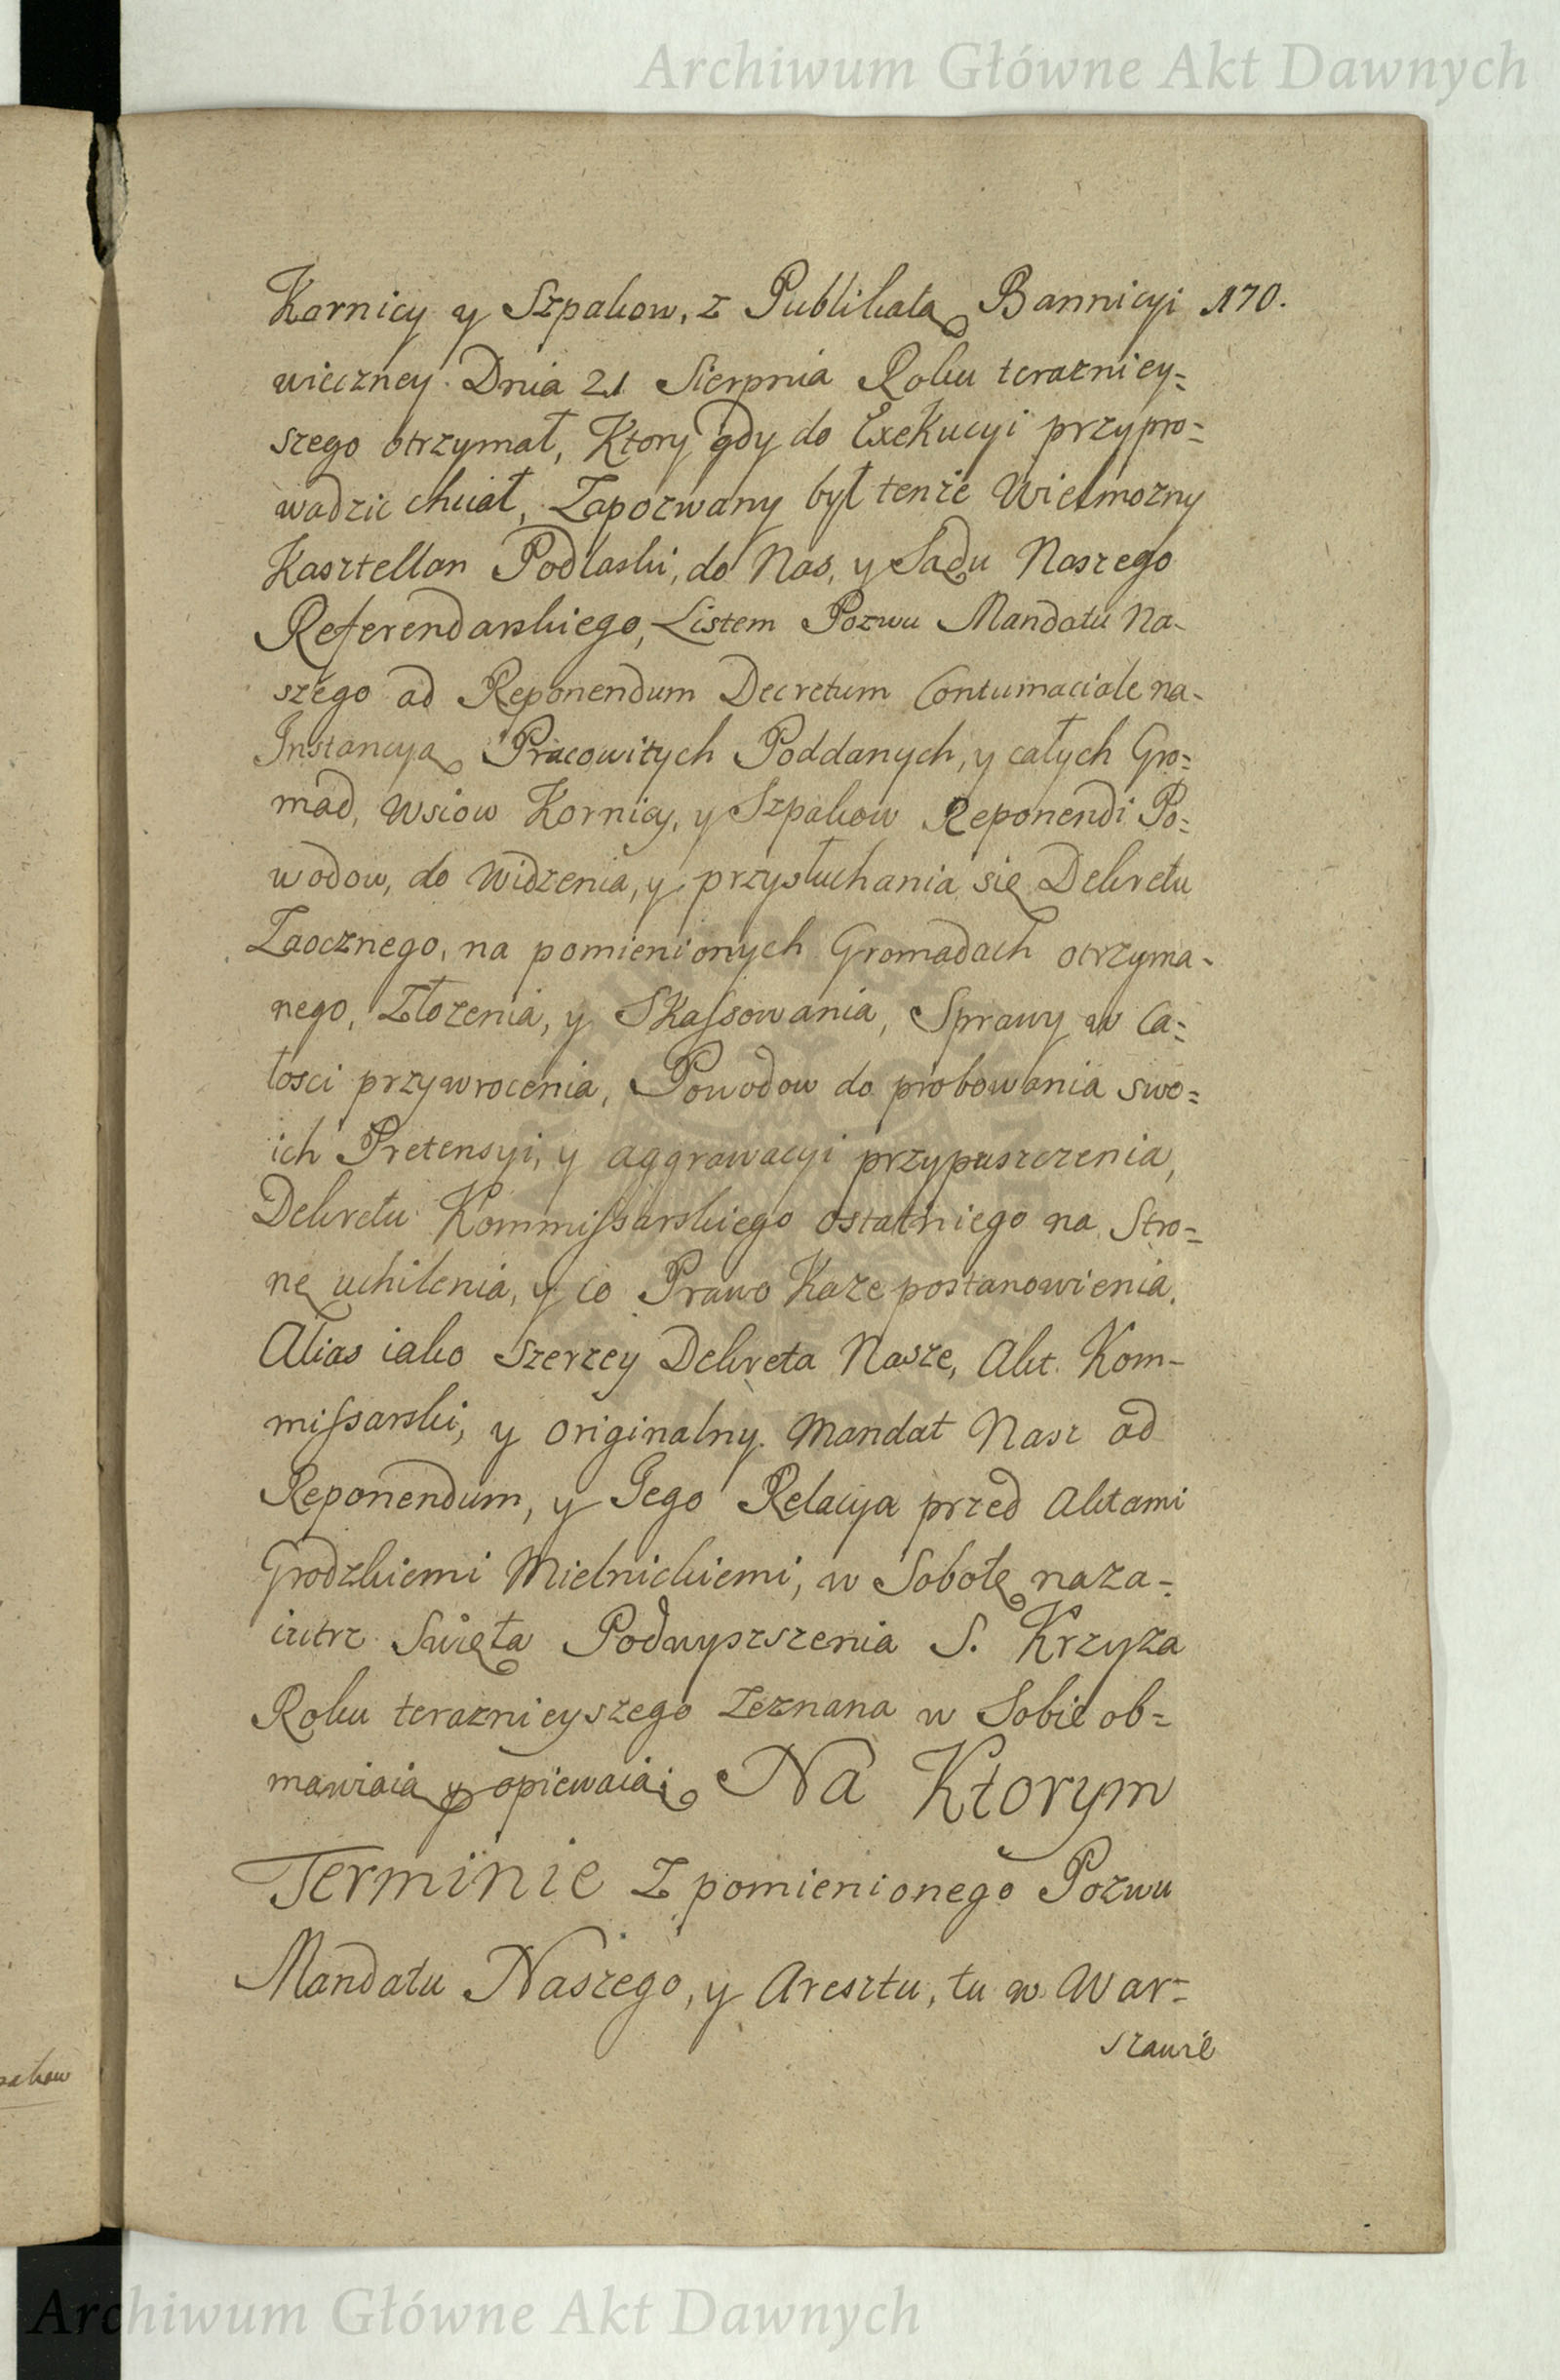 Archiwum Główne Akt Dawnych
Kornicy y Szpakow, z Publikatą Bannicyi 170.
wieczney Dnia 21 Sierpnia Roku terazniey=
szego otrzymał, Ktory gdy do Exekucyi przypro=
wadzic chciał, Zapozwany był tenże Wielmozny
Kasztellan Podlaski, do Nas, y Sądu Naszego
Referendarskiego, Listem Pozwu Mandatu Na-
szego ad Reponendum Decretum Contumaciale na-
Instancyą Pracowitych Poddanych, y całych Gro=
mad, Wsiow Kornicy, y Szpakow Reponendi Po=
wodow, do Widzenia, y przysłuchania się Dekretu
Zaocznego, na pomienionych Gromadach otrzyma-
nego, Złozenia, y Skaſsowania, Sprawy w Ca=
łosci przywrocenia, Powodow do probowania swo=
ich Pretensyi, y aggrawacyi przypuszczenia,
Dekretu Kommiſsarskiego ostatniego na Stro=
nę uchilenia, y co Prawo Kaze postanowienia.
Alias iako szerzey Dekreta Nasze, Akt Kom-
miſsarski, y originalny Mandat Nasz ad
Reponendum, y Jego Relacya przed Aktami
Grodzkiemi Mielnickiemi, w Sobotę naza-
iutrz Swięta Podwyszszenia S. Krzyza
Roku teraznieyszego Zeznana w Sobie ob=
mawiaią y opiewaią; Na Ktorym
Terminie Z pomienionego Pozwu
Mandatu Naszego, y Aresztu, tu w War=
szawie
Archiwum Główne Akt Dawnych